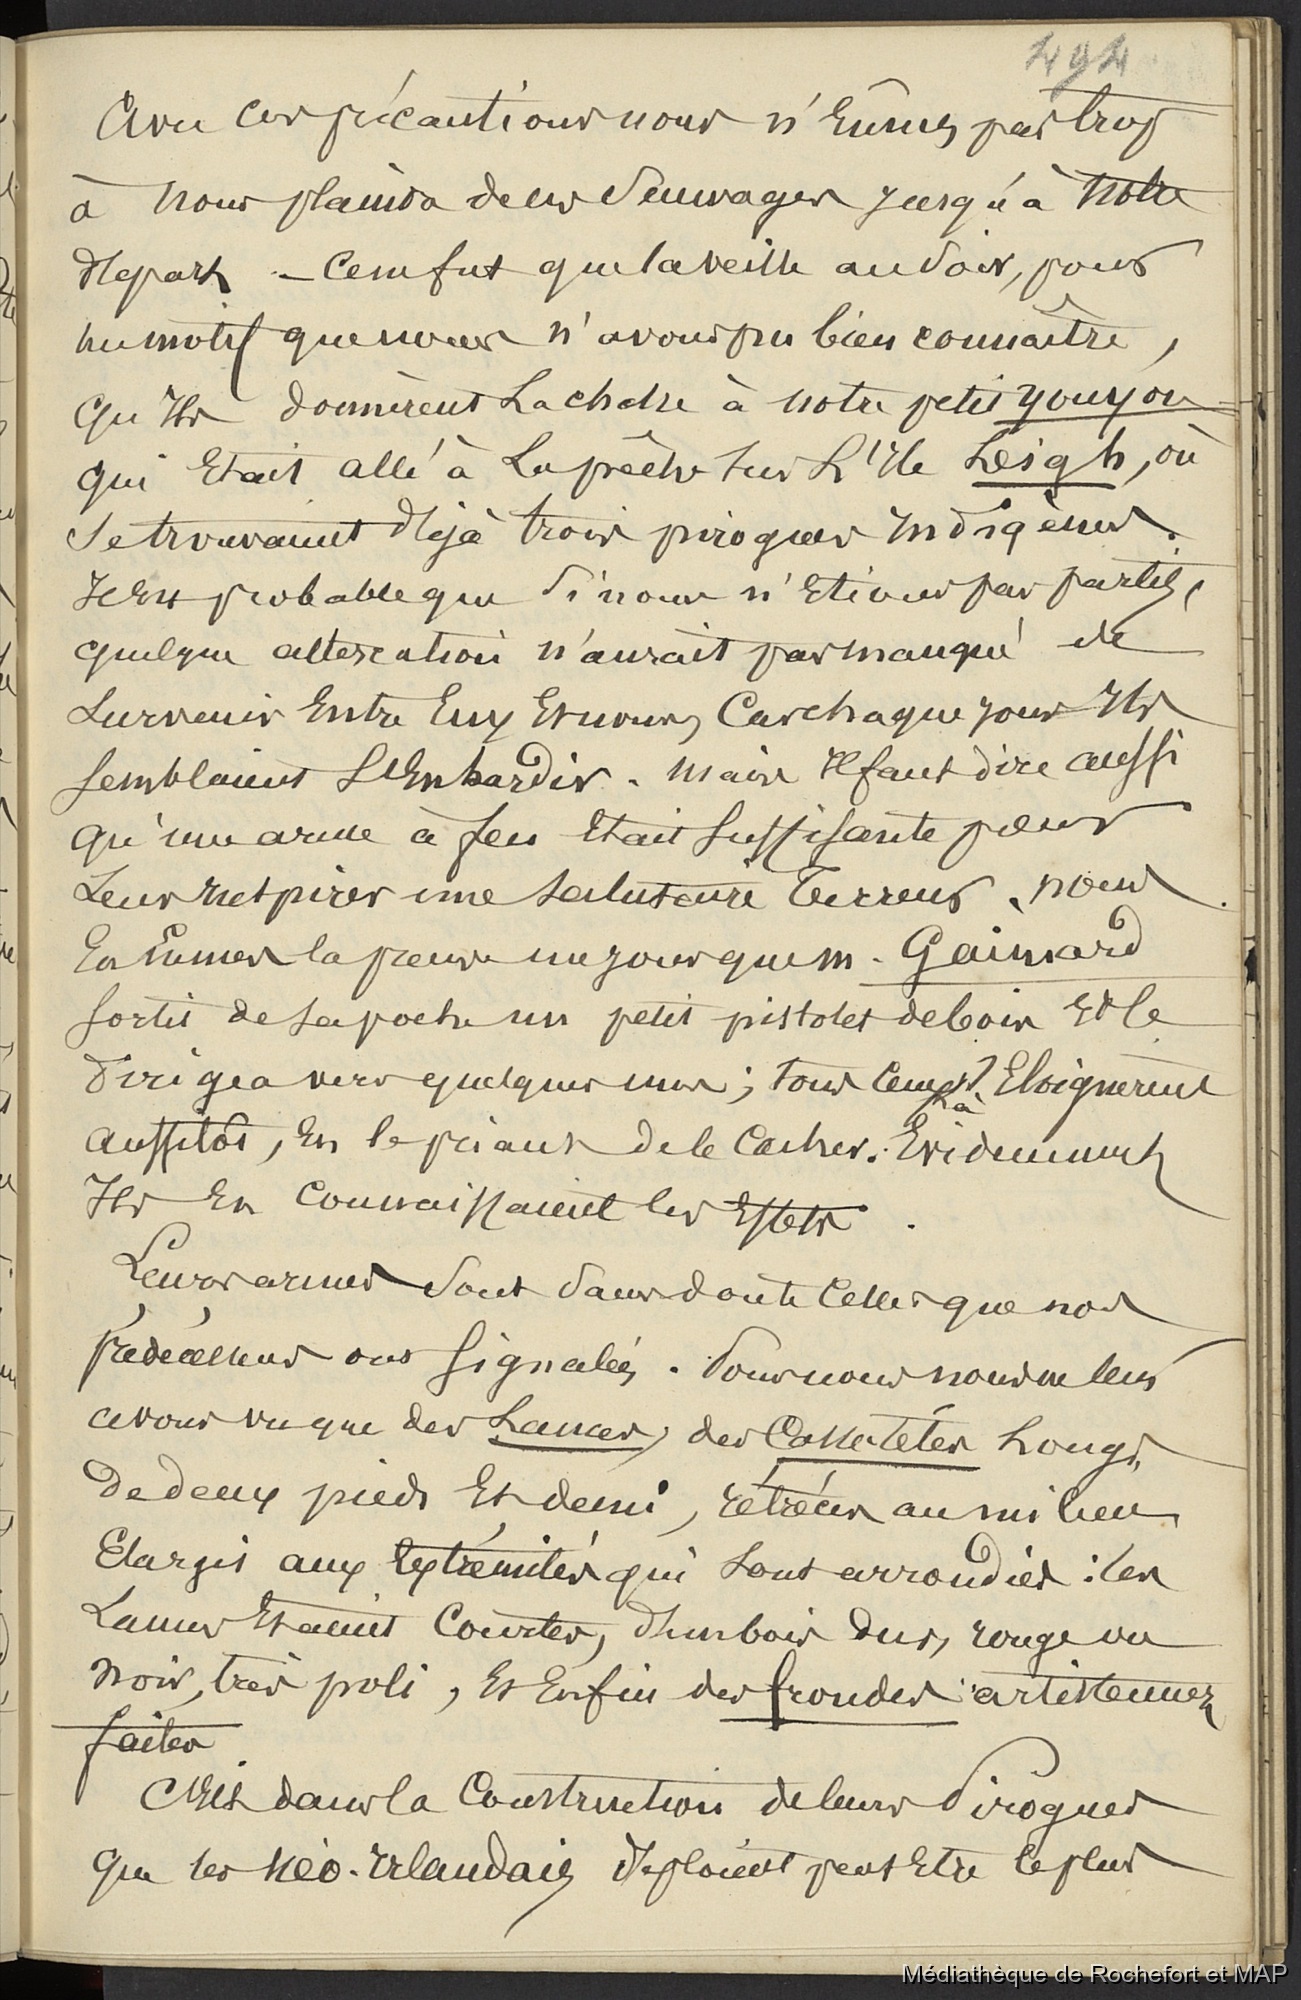 494
Avec ces précautions nous n'Eûmes pas trop
à nous plaindre de ces Sauvages jusqu'à notre
départ – ce ne fut que la veille au Soir, pour
un motif que nous n'avons pu bien connaître,
qu'Ils donnèrent La chasse à notre petit youyou
qui Etait allé à La pêche sur L'Ile Leigh, où
se trouvaient déjà trois pirogues Indigènes.
Il Est probable que Si nous n'Etions pas partis,
quelque altercation n'aurait pas manqué de
Survenir Entre Eux Et nous, Car chaque jour Ils
semblaient S'Enhardir. mais Il faut dire aussi
qu'une arme à feu Etait Suffisante pour
Leur Inspirer une Salutaire Terreur. nous
En Eûmes la preuve un jour que m. Gaimard
sortit de sa poche un petit pistolet de bois Et le
dirigea vers quelques uns; tous ceux là s'Eloignèrent
aussitôt, En le priant de le Cacher. Evidemment
Ils En connaissaient les Effets.
Leurs armes Sont Sans doute Celles que nos
prédécesseurs ont Signalées. Pour nous nous ne leur
avons vu que des Lances, des Casse-têtes Longs,
De deux pieds Et demi, rétrécis au milieu
Elargis aux Extrémités qui Sont arrondies: les
Lances Etaient Courtes, d'un bois dur, rouge ou
noir, très poli, Et Enfin des frondes artistement
faites
C'Est dans la Construction de leurs Pirogues
que les Néo-Irlandais déploient peut Etre le plus
Médiathèque de Rochefort et MAP